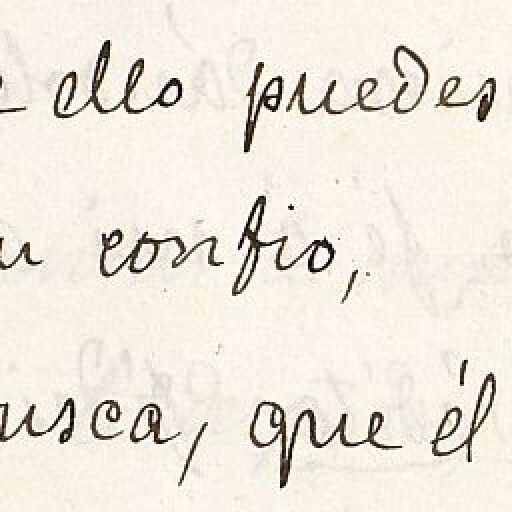 ello puedes
confio,
usca, que él